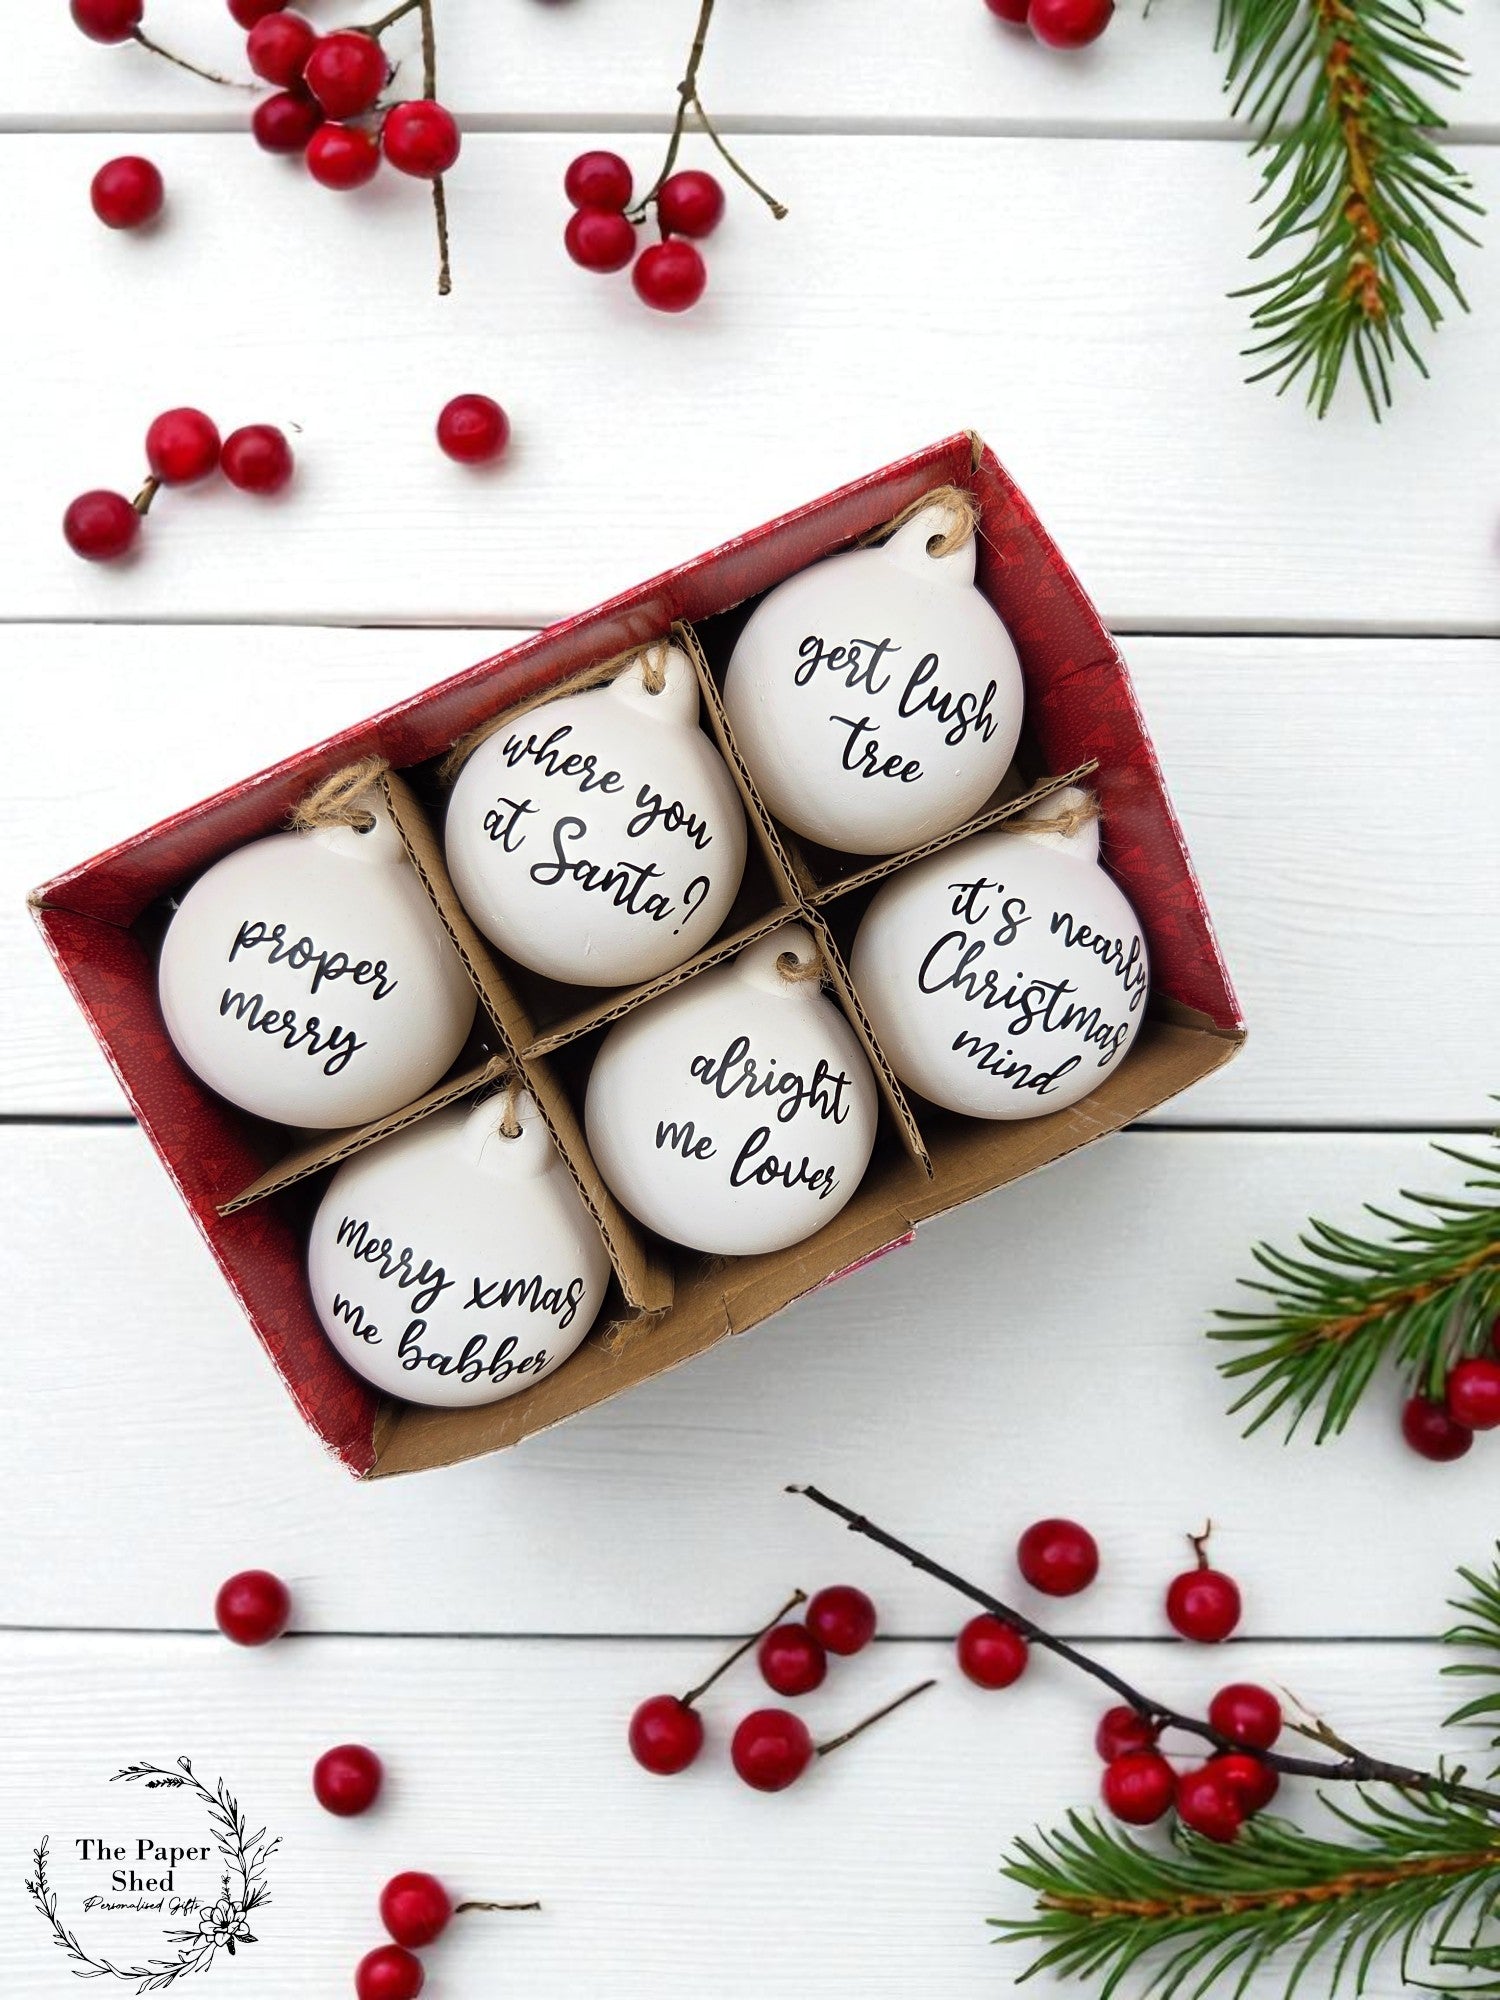 gert lush
tree
where you
at Santa?
proper
merry
it's nearly
Christmas
mind
alright
me lover
merry xmas
me babber
The Paper
Shed
Personalised Gifts